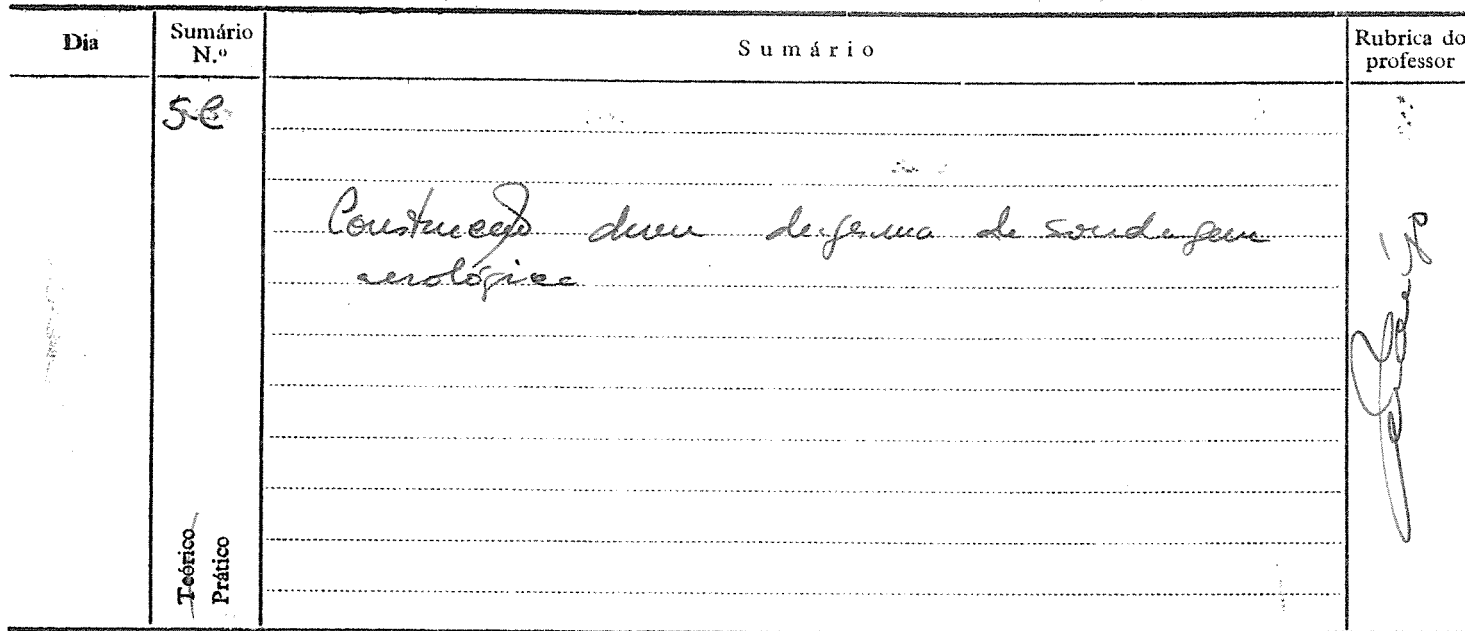 Dia
Sumário
N.º
Sumário
Rubrica do
professor
5-C
Construção dum diagrama de sondagem
aerológica
Teórico
Prático